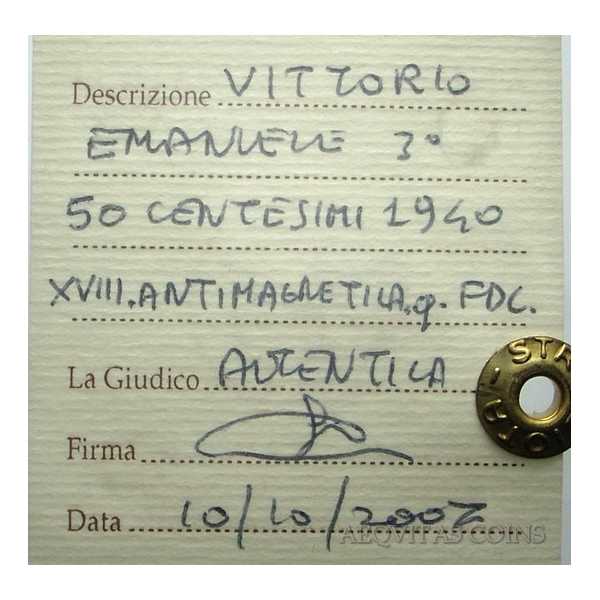 Descrizione VITTORIO
EMANUELE 3°
50 CENTESIMI 1940
XVIII. ANTIMAGNETICA. q. FDC.
La Giudico AUTENTICA
Firma
Data 10/10/2007
AEQVITAS COINS